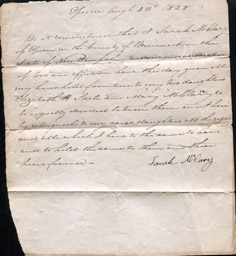 Epsom Augt 29th 1828
Be it remembered that I Sarah McClary
of Epsom in the County of Merrimack in the
State of New Hampshire in consideration
of love and affection have this day given all
my household furniture to my daughters
Elizabeth and Mary McClary to
to equally divided between them and I here
by relinquish to my said daughters all the right
and title which I have to the same to have
and to hold the same to them and their
heirs forever
Sarah McClary